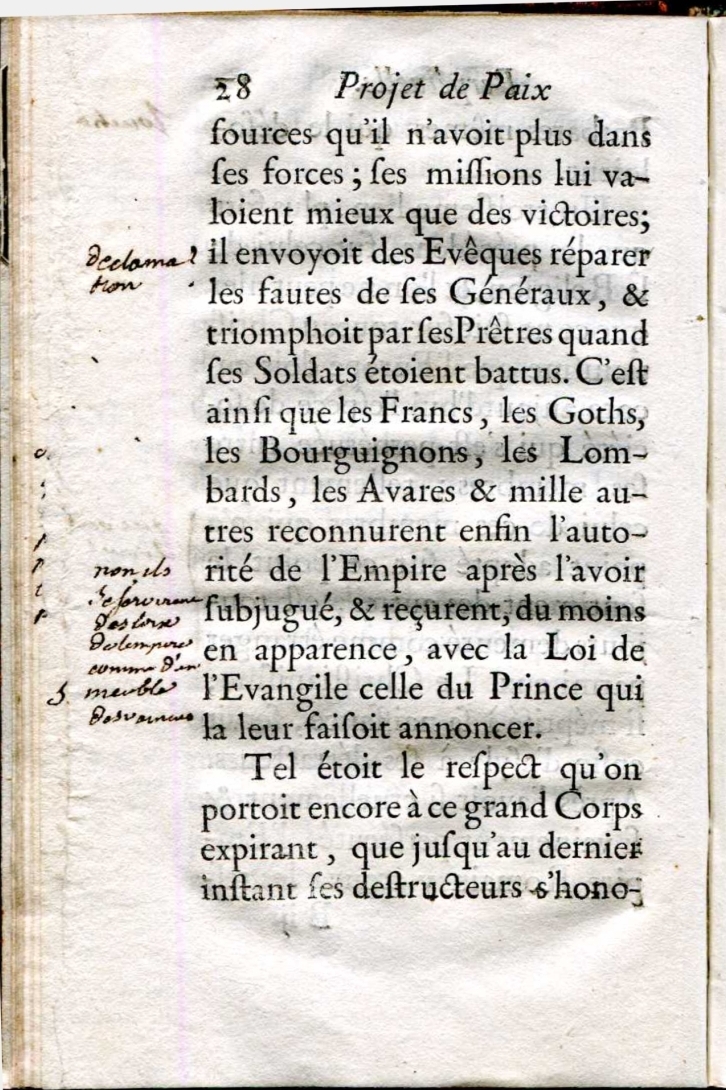 28 Projet de Paix
ſources qu'il n'avoit plus dans
ſes forces ; ſes miſſions lui va-
loient mieux que des victoires;
il envoyoit des Evêques réparer
les fautes de ſes Généraux, &
triomphoit par ſes Prêtres quand
ſes Soldats étoient battus. C'eſt
ainſi que les Francs, les Goths,
les Bourguignons, les Lom-
bards, les Avares & mille au-
tres reconnurent enfin l'auto-
rité de l'Empire après l'avoir
ſubjugué, & reçurent, du moins
en apparence, avec la Loi de
l'Evangile celle du Prince qui
la leur faiſoit annoncer.
Tel étoit le reſpect qu'on
portoit encore à ce grand Corps
expirant, que juſqu'au dernier
inſtant ſes deſtructeurs s'hono-
declama
tion
non ils
se servirent
des loix
de lempire
comme d'un
meuble
des vaincus